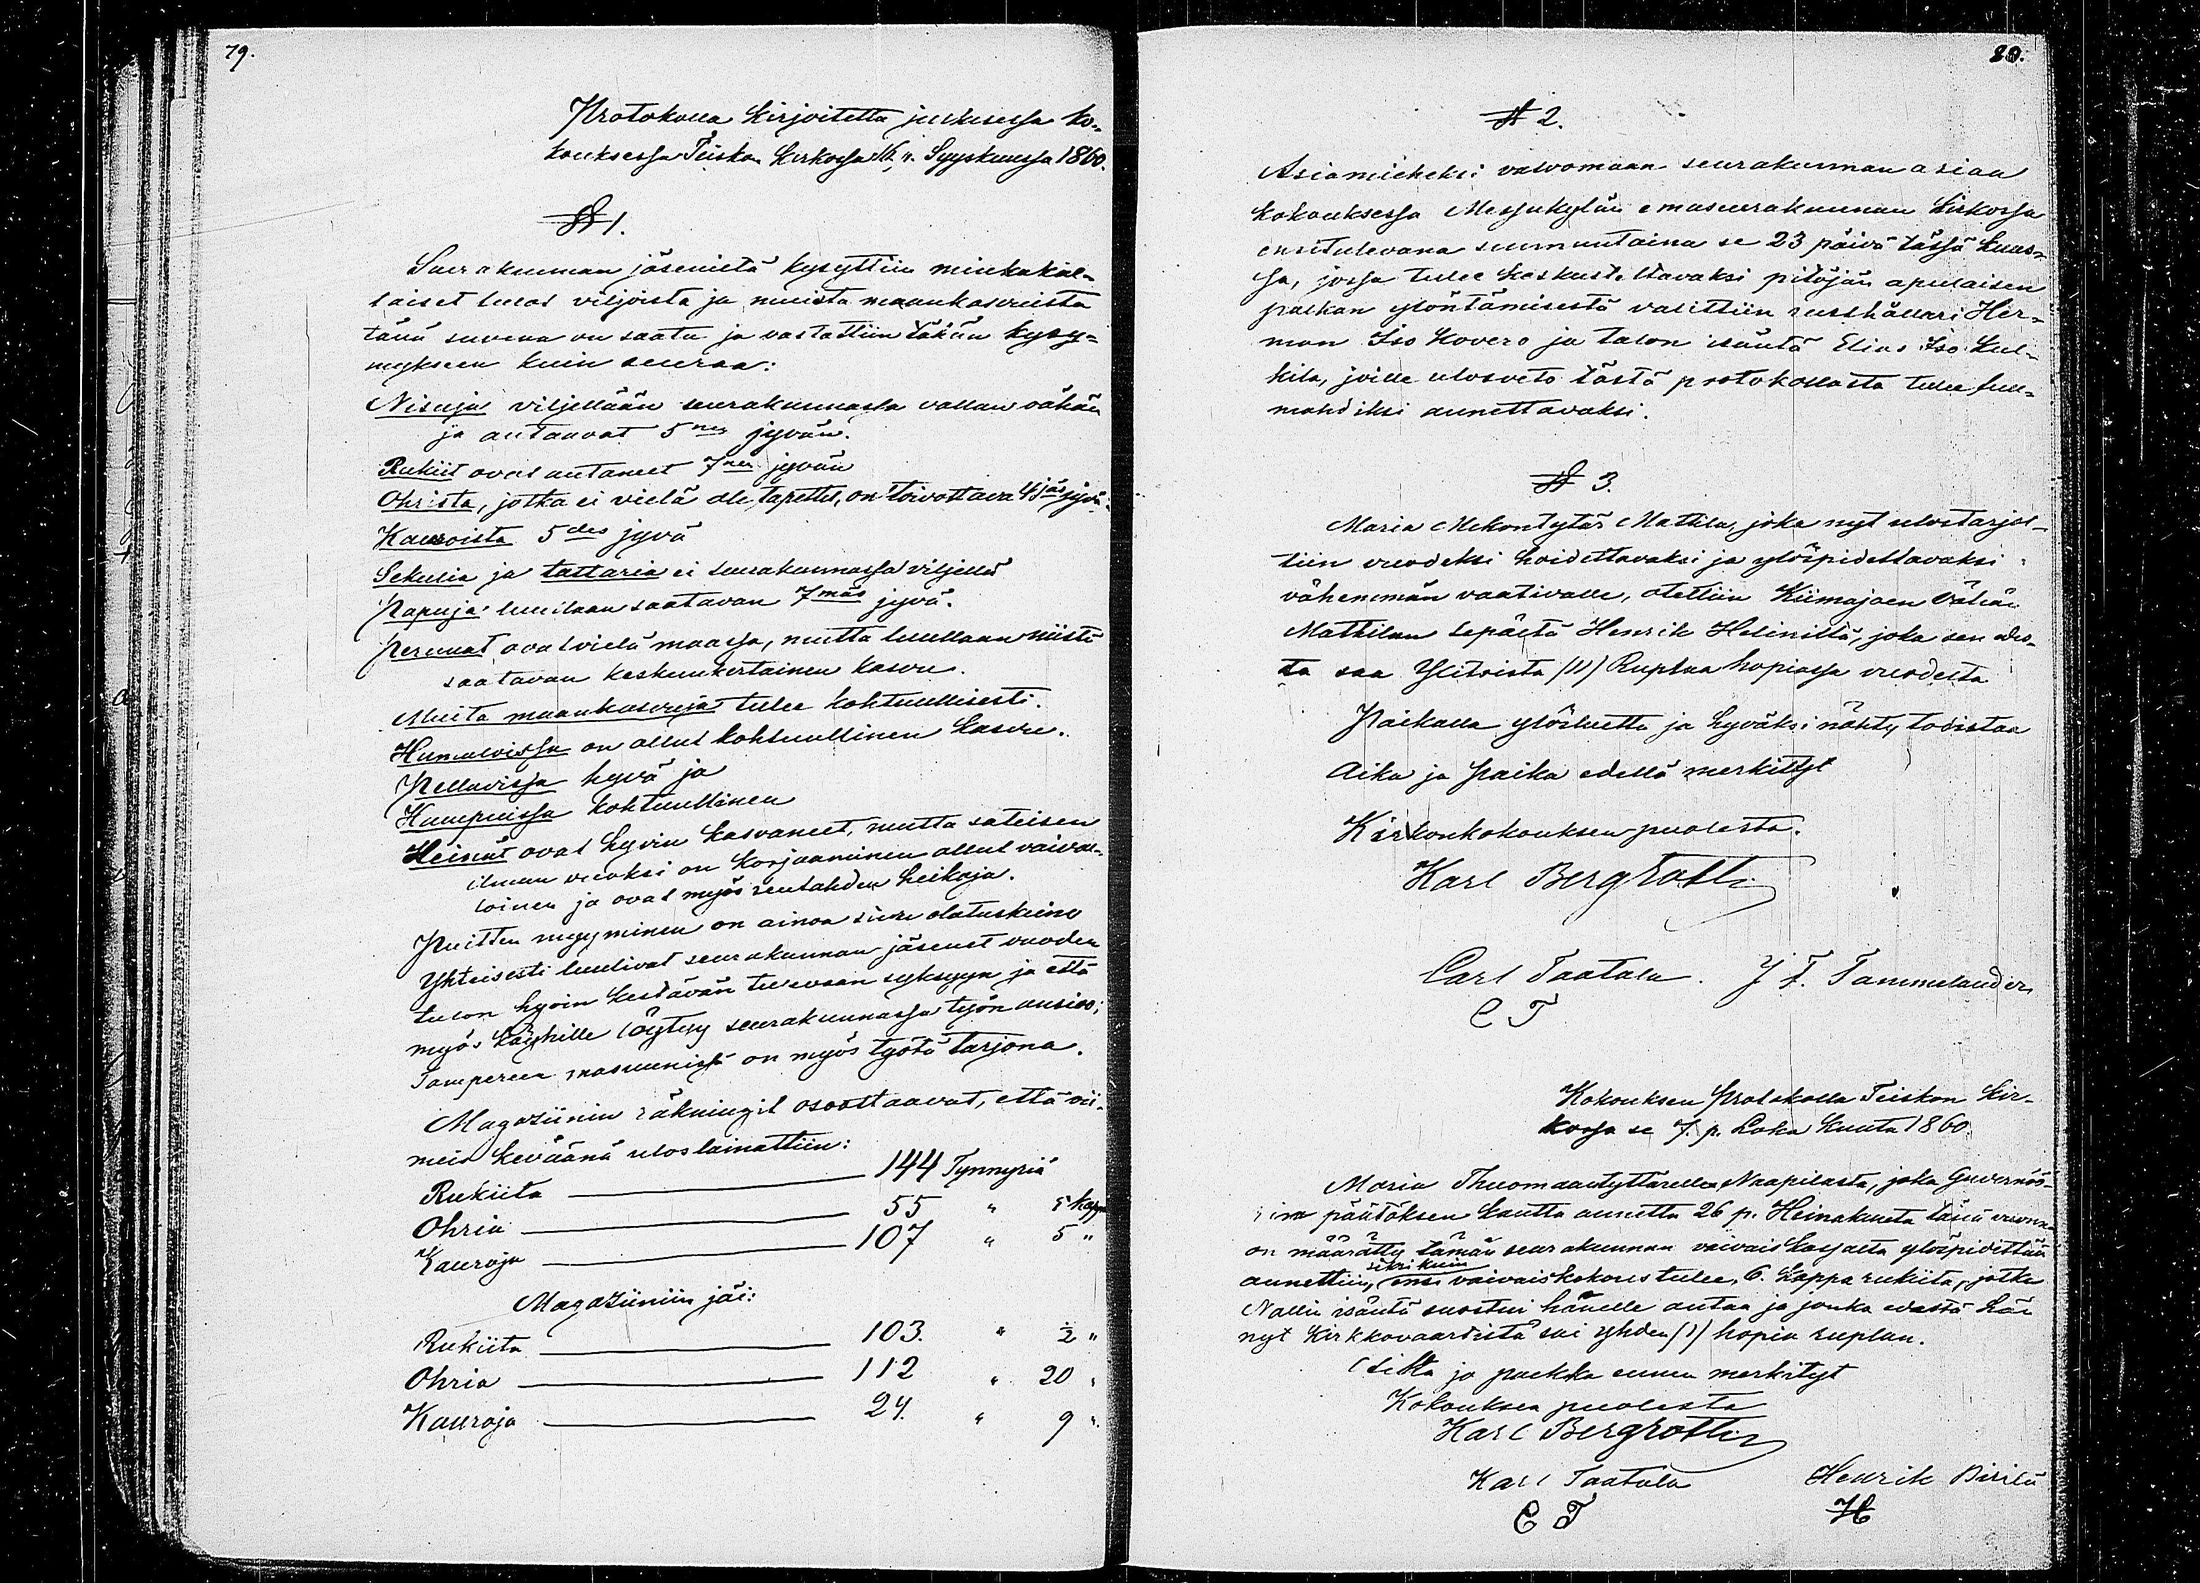 79.
Protokolla kirjoitettu julkisessa ko-
kouksessa Teiskon kirkossa 16 p. Syyskuussa 1860.
§ 1.
Seurakunnan jäseniltä kysyttiin minkäkal-
taiset tulot viljoista ja muista maankasvuista
tänä suvena on saatu ja vastattiin tähän kysy-
mykseen kuin seuraa:
Nisuja viljellään seurakunnassa vallan vähän
ja antaavat 5nen jyvän.
Rukiit ovat antaneet 7nen jyvän
Ohrista, jotka ei vielä ole tapettu, on toivottava 4jäs jyvä.
Kauroista 5des jyvä
Sekulia ja tattaria ei seurakunnassa viljellä
Papuja luullaan saatavan 7mäs jyvä.
Perunat ovat vielä maassa, mutta luullaan niistä
saatavan keskunkertainen kasvu.
Muita maankasvuja tulee kohtuullisesti.
Humaloissa on ollut kohtuullinen kasvu.
Pellavissa hyvä ja
Hampuissa kohtuullinen
Heinät ovat hyvin kasvaneet, mutta sateisen
ilman vuoksi on korjaaminen ollut vaiva-
loinen ja ovat myös seutahden heikoja.
Puitten myyminen on ainoa sivu elatuskeino
Yhteisesti luulivat seurakunnan jäsenet vuoden
tulon hyvin kestävän tulevaan syksyyn ja että
myös köyhille löytyy seurakunnassa työn ansio;
Tampereen masuunissa on myös työtä tarjona.
Magaziinin räkningit osoottaavat, että vii-
meis keväänä uloslainattiin:
Rukiita 144 Tynnyriä
Ohria 55 " 5 kappa
Kauroja 107 " 5 "
Magaziiniin jäi:
Rukiita 103. " ½ "
Ohria 112 " 20 "
Kauroja 24. " 9 "
80.
§ 2.
Asiamieheksi valvomaan seurakunnan asiaa
kokouksessa Messukylän emäseurakunnan kirkossa
ensitulevana sunnuntaina se 23 päivä tässä kuus-
sa, jossa tulee keskusteltavaksi pitäjän apulaisen
palkan ylöntämisestä valittiin rusthållari Her-
man Iso Hovero ja talon isäntä Elias Iso Kul-
kila, joille ulosveto tästä protokollasta tulee full-
mahdiksi annettavaksi.
§ 3.
Maria Mikontytär Mattila, joka nyt ulostarjot-
tiin vuodeksi hoidettavaksi ja ylöspidettavaksi
vähemmän vaativalle, otettiin Kiimajoen Vähän
Mattilan sepältä Henrik Heliniltä, joka sen edes-
tä saa Ylitoista (11) Ruplaa hopiassa vuodelta
Paikalla ylösluettu ja hyväksi nähty, todistaa
Aika ja paika edellä merkityt
Kirkonkokouksen puolesta.
Karl Bergroth
Carl Taatala. J F. Tammelander
C T
Kokouksen Protokolla Teiskon Kir-
kossa se 7. p. Loka Kuuta 1860
Maria Thuomaantyttärelle Naapilasta, joka Guvernöö-
rin päätöksen kautta annettu 26 p. Heinäkuuta tänä vuonna
on määrätty tämän seurakunnan vaivaiskassalta ylöspidettää
siksi kuin
annettiin, ensi vaivaiskokous tulee, 6. kappa rukiita, jotka
Nallin isäntä suostui hänelle antaa ja jonka edestä hän
nyt Kirkkovaardilta sai yhden (1) hopia ruplan.
Aika ja paikka ennen merkityt
Kokouksen puolesta
Karl Bergroth
Karl Taatala Henrik Pirilä
C T H